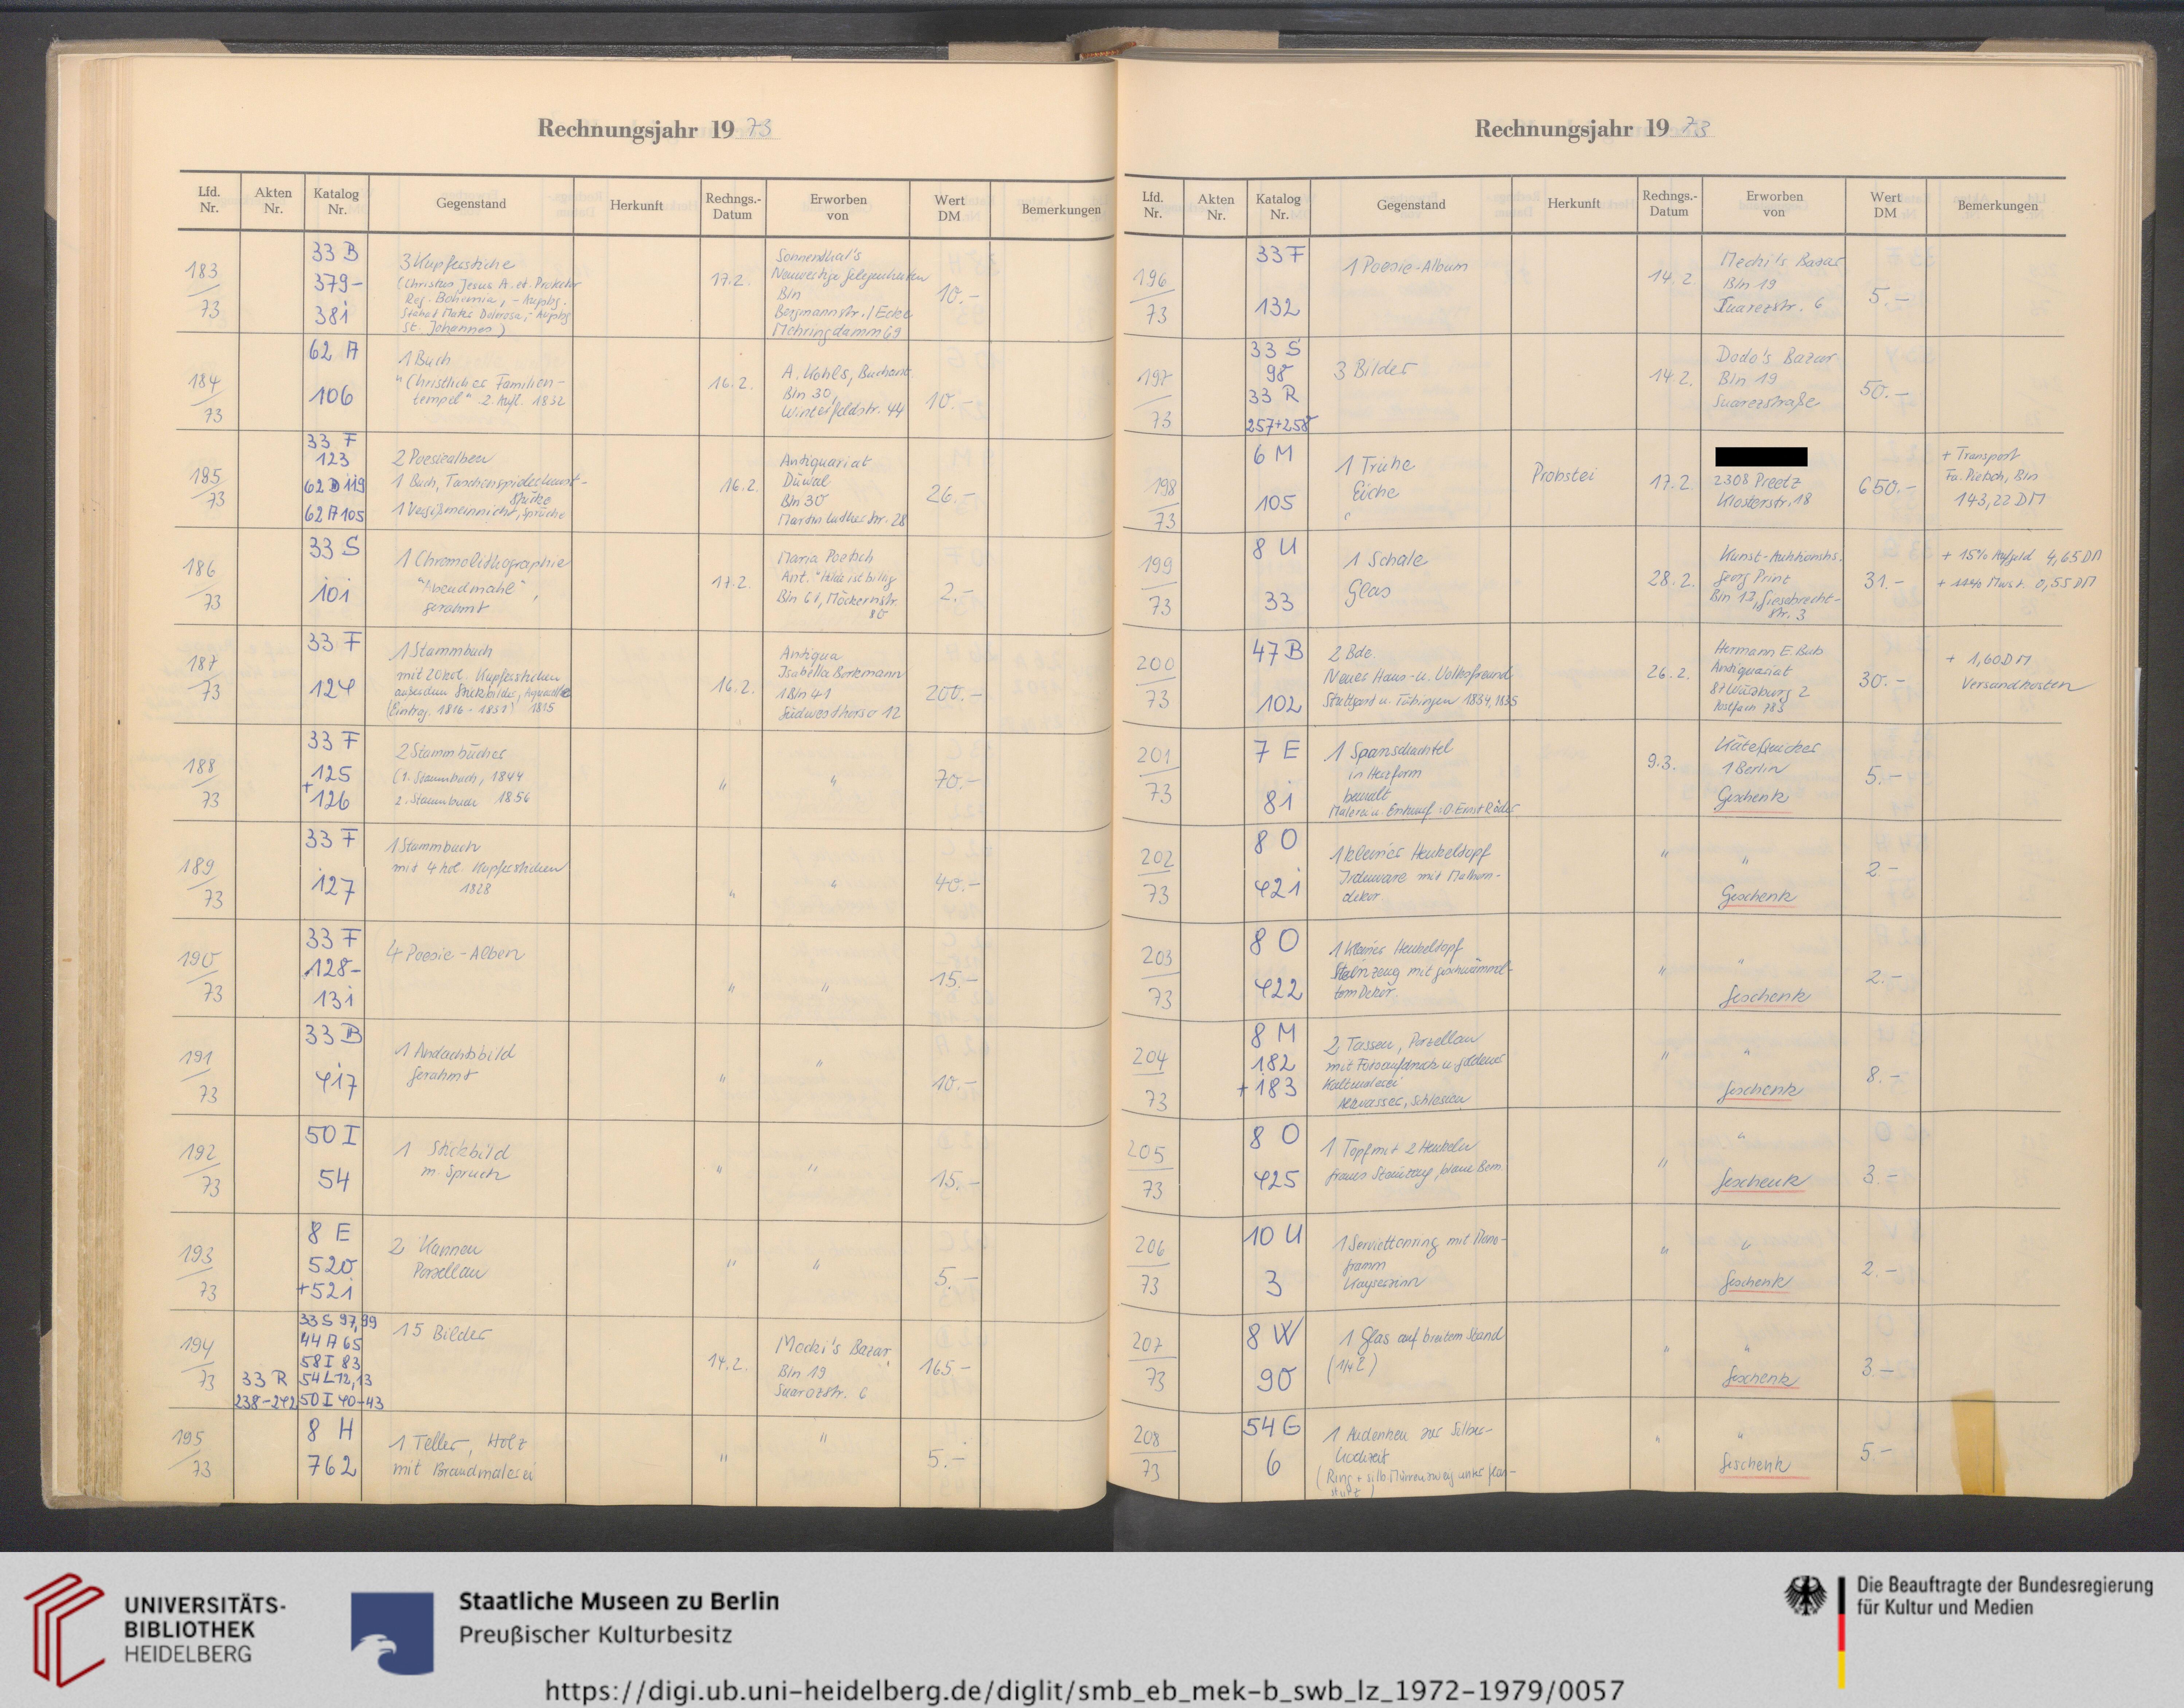 Rechnungsjahr 19 73
Lfd. Nr.
Akten Nr.
Katalog Nr.
Gegenstand
Herkunft
Rechngs.-Datum
Erworben von
Wert DM
Bemerkungen
183/73
33 B
379-
381
3 Kupferstiche
(Christus, Jesus A. et. Protektor
Reg. Bohemia, - Augsbg.
Stabat Mater Dolorosa, - Augsbg
St. Johannes)
17.2.
Sonnenthal's
Neuwertige Gelegenheiten
Bln
Bergmannstr. / Ecke
Mehringdamm 69
10.-
184/73
62 A
106
1 Buch
"Christliches Familien-
tempel" 2. Aufl. 1832
16.2.
A. Kohls, Buchant.
Bln 30,
Winterfeldstr. 44
10.-
185/73
33 F
123
62 D 119
62 A 105
2 Poesiealben
1 Buch,
1 Vergißmeinnicht, Sprüche
16.2.
Antiquariat
Düwal
Bln 30
Martin Luther Str. 28
26.-
186/73
33 S
101
1 Chromolithographie
"Abendmahl",
gerahmt
17.2.
Maria Poetsch
Ant. "Hilda ist billig
Bln 61, Möckernstr.
80
2.-
187/73
33 F
124
1 Stammbuch
mit 20 kol. Kupferstichen
außerdem Stickbilder, Aquarelle
(Eintrag. 1816 - 1831) 1815
16.2.
Antiqua
Isabella Borkmann
1 Bln 41
Südwestkorso 12
200.-
188/73
33 F
125
+
126
2 Stammbücher
(1. Stammbuch, 1844
2. Stammbuch 1856
"
"
70.-
189/73
33 F
127
1 Stammbuch
mit 4 kol. Kupferstichen
1828
"
"
40.-
190/73
33 F
128-
131
4 Poesie-Alben
"
"
15.-
191/73
33 B
417
1 Andachtsbild
gerahmt
"
"
10.-
192/73
50 I
54
1 Stickbild
m. Spruch
"
"
15.-
193/73
8 E
520
+521
2 Kannen
Porzellan
"
"
5.-
194/73
33 R
238-242
33 S 97, 99
44 A 65
58 I 83
54 L 12, 13
50 I 40-43
15 Bilder
14.2.
Mecki's Bazar
Bln 19
Suarezstr. 6
165.-
195/73
8 H
762
1 Teller, Holz
mit Brandmalerei
"
"
5.-
Rechnungsjahr 19 73
Lfd. Nr.
Akten Nr.
Katalog Nr.
Gegenstand
Herkunft
Rechngs.-Datum
Erworben von
Wert DM
Bemerkungen
196/73
33 F
132
1 Poesie-Album
14.2.
Mecki's Basar
Bln 19
Suarezstr. 6
5.-
197/73
33 S
98
33 R
257+258
3 Bilder
14.2.
Dodo's Bazar
Bln 19
Suarezstraße
50.-
198/73
6 M
105
1 Truhe
Eiche
Probstei
17.2.
2308 Preetz
Klosterstr. 18
650.-
+ Transport
Fa. Pietsch, Bln
143,22 DM
199/73
8 U
33
1 Schale
Glas
28.2.
Kunst-Auktionshs.
Georg Prinz
Bln 12, Giesebrecht-
str. 3
31.-
+ 15% Aufgeld 4,65 DM
+ 11% Mwst. 0,55 DM
200/73
47 B
102
2 Bde.
Neuer Haus- u. Volksfreund
Stuttgart u. Tübingen 1834, 1835
26.2.
Hermann E. Bub
Antiquariat
87 Würzburg 2
Postfach 783
30.-
+ 1,60 DM
Versandkosten
201/73
7 E
81
1 Spanschachtel
in Herzform
bemalt
Malerei u. Entwurf: O. Ernst Röder
9.3.
1 Berlin
Geschenk
5.-
202/73
8 O
421
1 kleiner Henkeltopf
Irdenware mit Malhorn-
dekor
"
"
Geschenk
2.-
203/73
8 O
422
1 kleiner Henkeltopf
Steinzeug mit geschwämmel-
tem Dekor.
"
"
Geschenk
2.-
204/73
8 M
182
+183
2 Tassen, Porzellan
mit Fotoaufdruck u. goldener
Kaltmalerei
Altwasser, Schlesien
"
"
Geschenk
8.-
205/73
8 O
425
1 Topf mit 2 Henkeln
graues Steinzeug, blaue Bem.
"
"
Geschenk
3.-
206/73
10 U
3
1 Serviettenring mit Mono-
gramm
Kayserzinn
"
"
Geschenk
2.-
207/73
8 W
90
1 Glas auf breitem Stand
(1/4 l)
"
"
Geschenk
3.-
208/73
54 G
6
1 Andenken zur Silber-
hochzeit
(Ring + silb. Myrtenzweig unter Glas-
sturz)
"
"
Geschenk
5.-
UNIVERSITÄTS-
BIBLIOTHEK
HEIDELBERG
Staatliche Museen zu Berlin
Preußischer Kulturbesitz
Die Beauftragte der Bundesregierung
für Kultur und Medien
https://digi.ub.uni-heidelberg.de/diglit/smb_eb_mek-b_swb_lz_1972-1979/0057